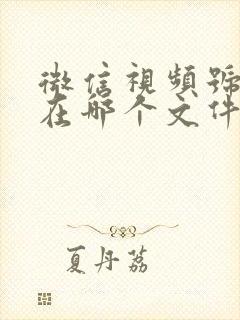 微信視頻號
在哪个文件
夏丹荔